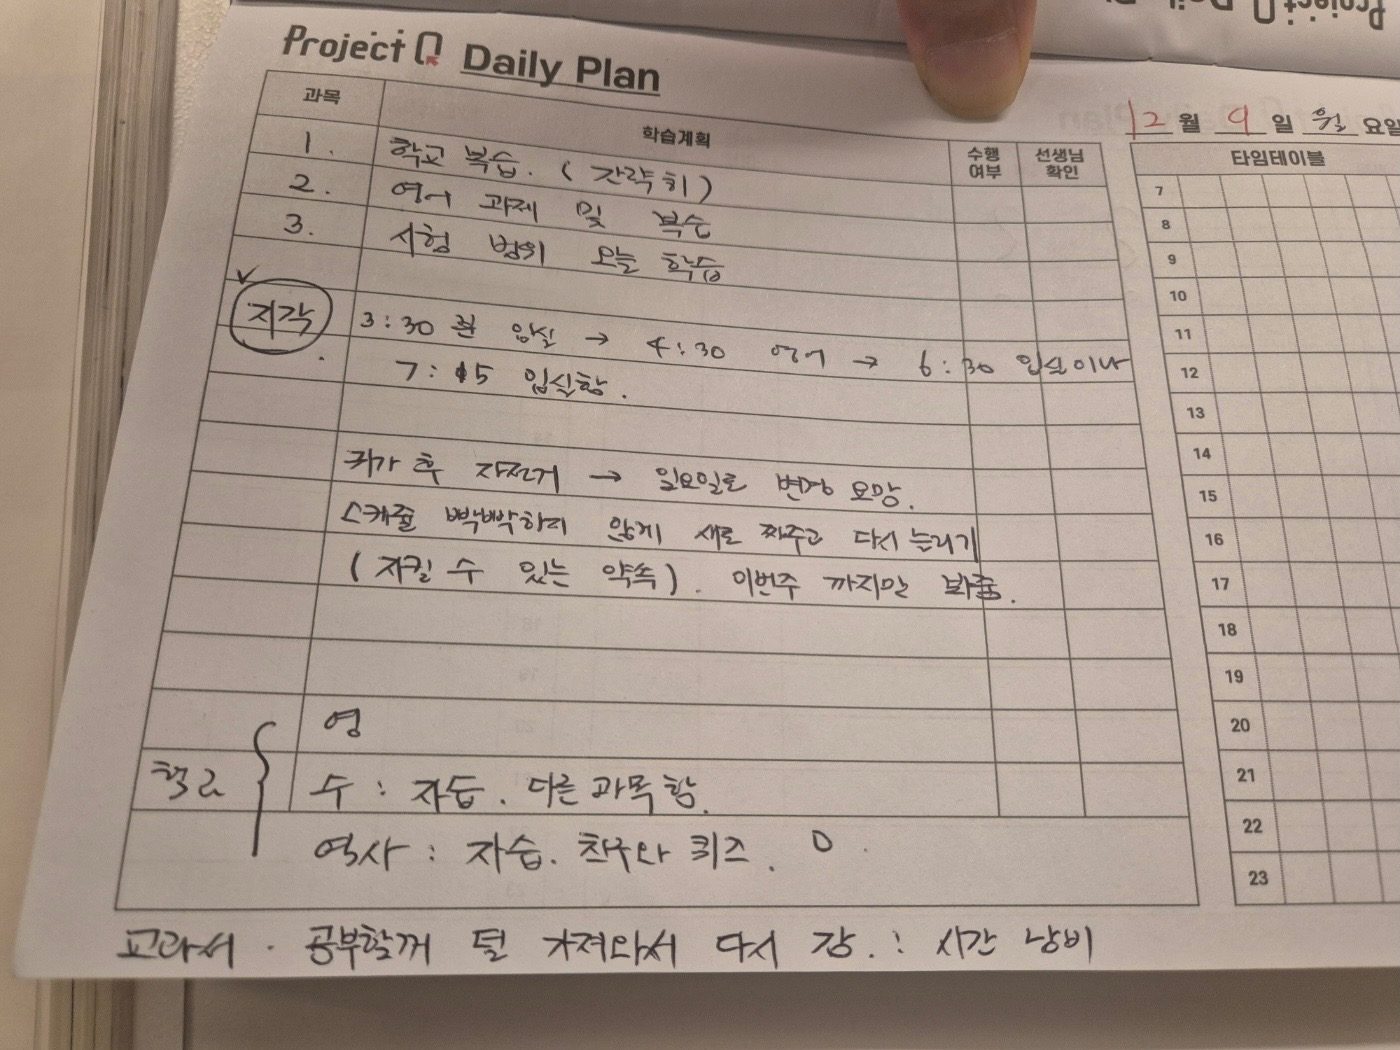 Project Q Daily Plan
12 월 9 일 월 요일
과목 학습계획 수행여부 선생님확인
1. 학교 복습. (간략히)
2. 영어 과제 및 복습
3. 시험 범위 오늘 학습
지각 3:30 입실 → 4:30 영어 → 6:30 입실이나
7:15 입실함.
귀가 후 자전거 → 일요일로 변경 요망.
스케줄 빡빡하지 않게 새로 짜주고 다시 늘리기
(지킬 수 있는 약속). 이번주 까지만 봐줌.
영
학교 수 : 자습. 다른 과목 함.
역사 : 자습. 친구와 퀴즈.
교과서. 공부할꺼 덜 가져와서 다시 감. : 시간 낭비
타임테이블
7
8
9
10
11
12
13
14
15
16
17
18
19
20
21
22
23